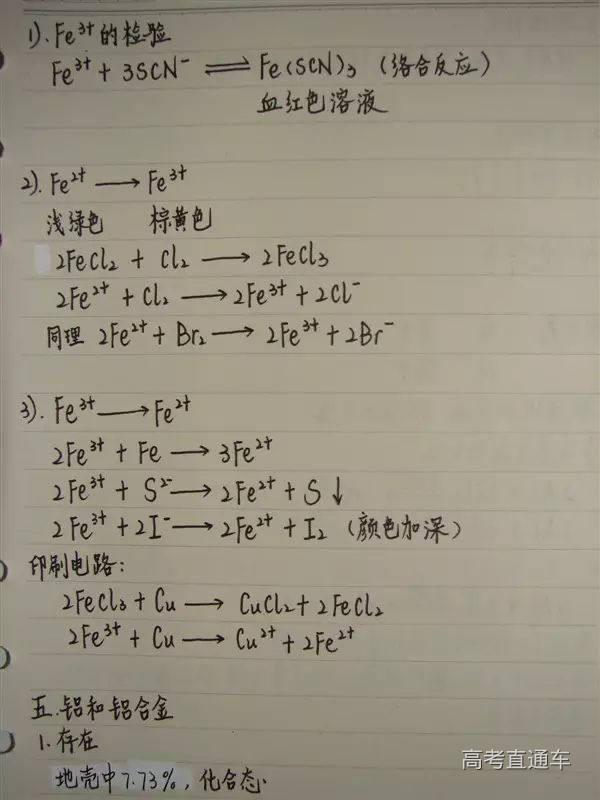 1). Fe³⁺的检验
Fe³⁺ + 3SCN⁻ ⇌ Fe(SCN)₃ (络合反应)
血红色溶液
2). Fe²⁺ → Fe³⁺
浅绿色 棕黄色
2FeCl₂ + Cl₂ → 2FeCl₃
2Fe²⁺ + Cl₂ → 2Fe³⁺ + 2Cl⁻
同理 2Fe²⁺ + Br₂ → 2Fe³⁺ + 2Br⁻
3). Fe³⁺ → Fe²⁺
2Fe³⁺ + Fe → 3Fe²⁺
2Fe³⁺ + S²⁻ → 2Fe²⁺ + S↓
2Fe³⁺ + 2I⁻ → 2Fe²⁺ + I₂ (颜色加深)
印刷电路:
2FeCl₃ + Cu → CuCl₂ + 2FeCl₂
2Fe³⁺ + Cu → Cu²⁺ + 2Fe²⁺
五.铝和铝合金
1.存在
地壳中7.73%,化合态.
高考直通车